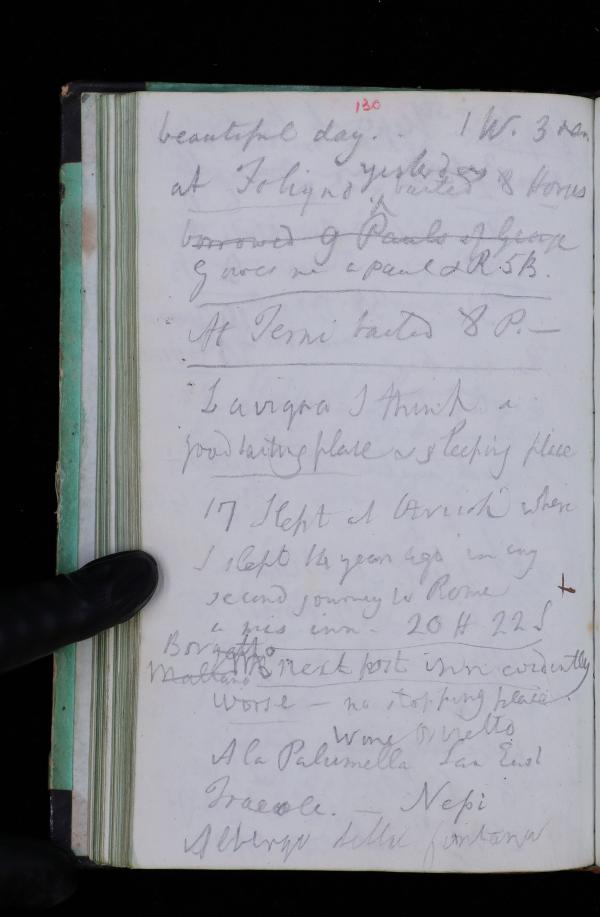 130
beautiful day. . 1 W. 3 
at Foligno yesterday baited 8 Horses
borrowed 9 Pauls of George
G owes me a paul & R. 5 B.
At Terni baited 8 P. —
I think a
good baiting place & sleeping place
17 Slept at where
I slept 14 years ago in my
second journey to Rome
a mis inn - 20 H 22 S
Borghetto
NB next post inn evidently
worse — no stopping place
wine Orvieto
A la Palumella San
— Nepi
Albergo della fontana